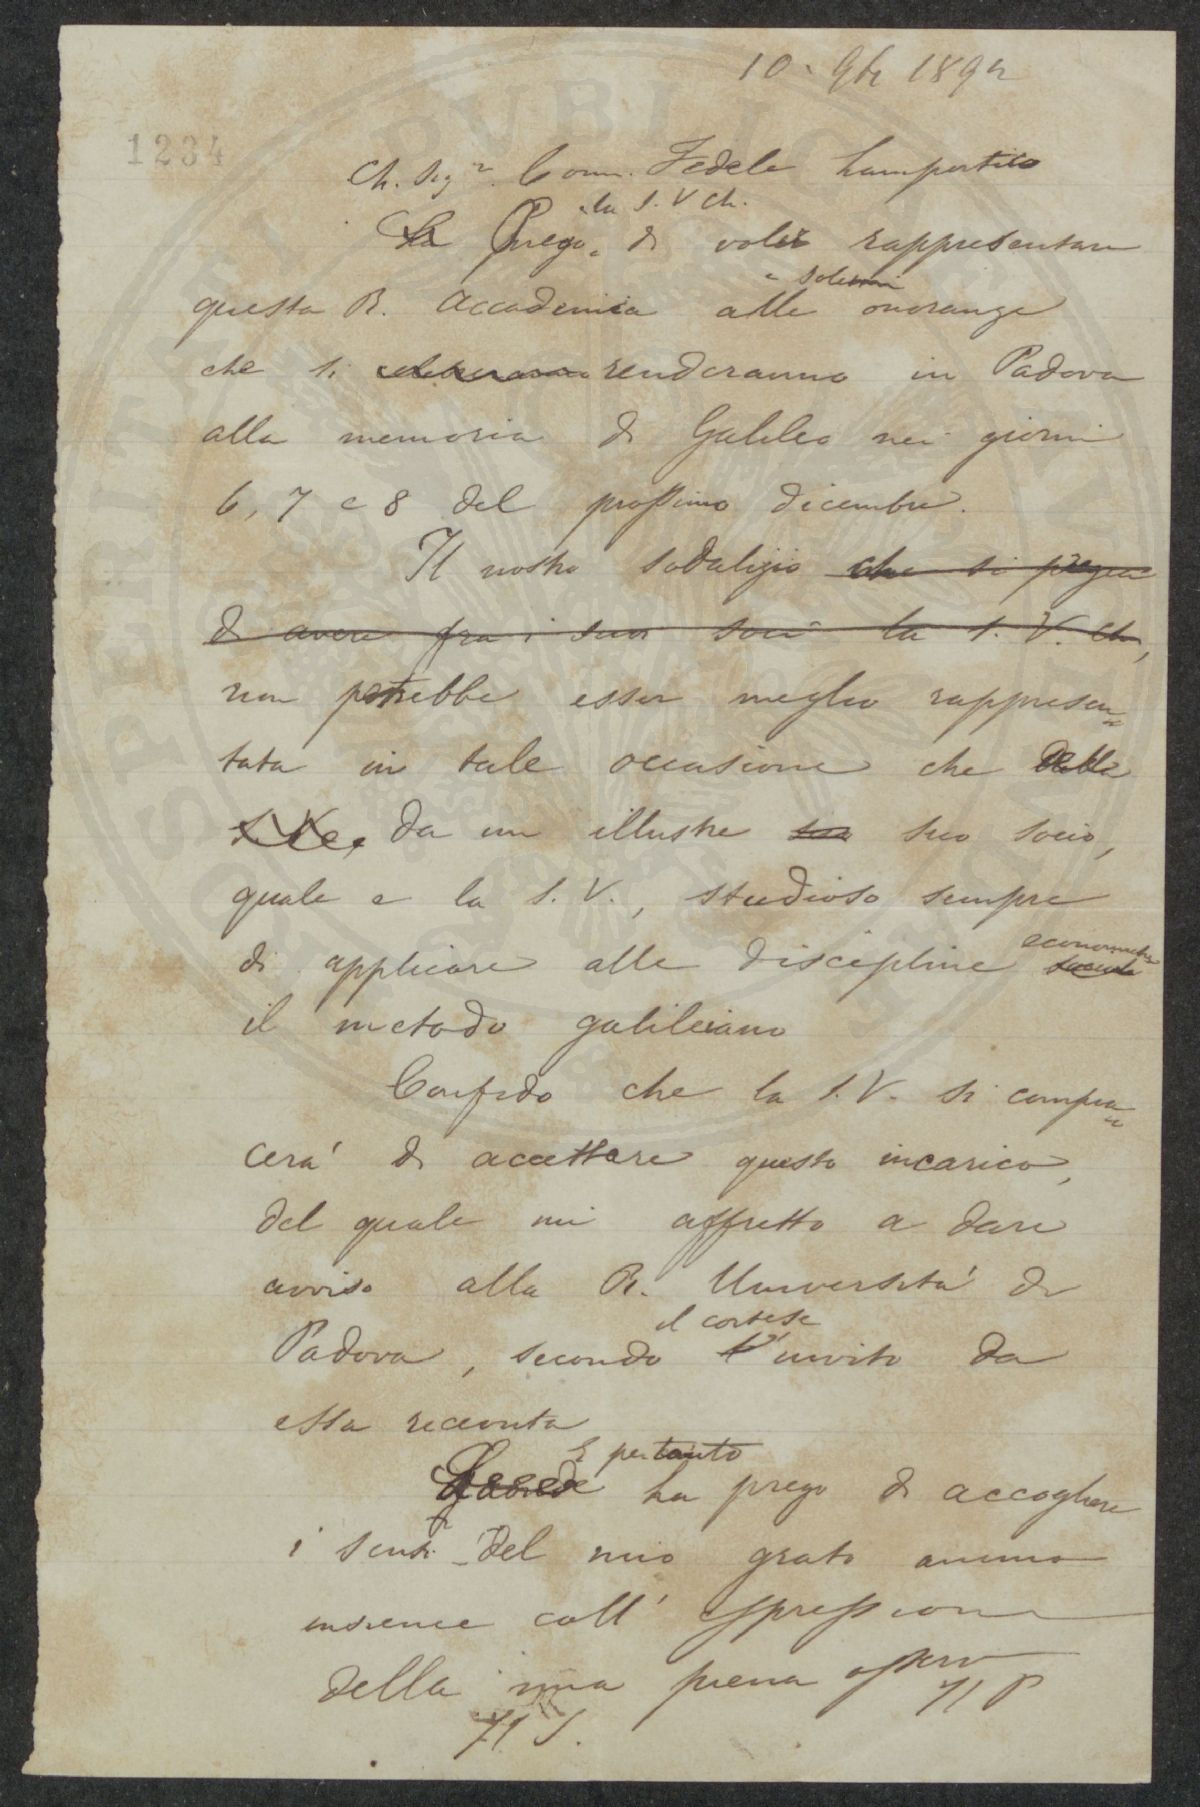 10 9br 1892
1234
Ch. Sigr. Comm. Fedele Lampertico
la S. V Ch.
La Prego di voler rappresentare
questa R. Accademia alle solenni onoranze
che si celebreranno renderanno in Padova
alla memoria di Galileo nei giorni
6, 7 e 8 del prossimo dicembre.
Il nostro sodalizio che si pregia
di avere fra i suoi soci la S. V. Ch,
non potrebbe esser meglio rappresen-
tata in tale occasione che dalla
S. V. Ch, da un illustre suo socio,
quale e la S. V., studioso sempre
economiche
di applicare alle discipline sociali
il metodo galileiano
Confido che la S. V. si compia-
cerà di accettare questo incarico,
del quale mi affretto a dare
avviso alla R. Università di
il cortese
Padova, secondo l'invito da
essa ricevuta
E pertanto
La prego di accogliere
i sensi del mio grato animo
insieme coll' espressione
della mia piena osserv
Il P
Il S.